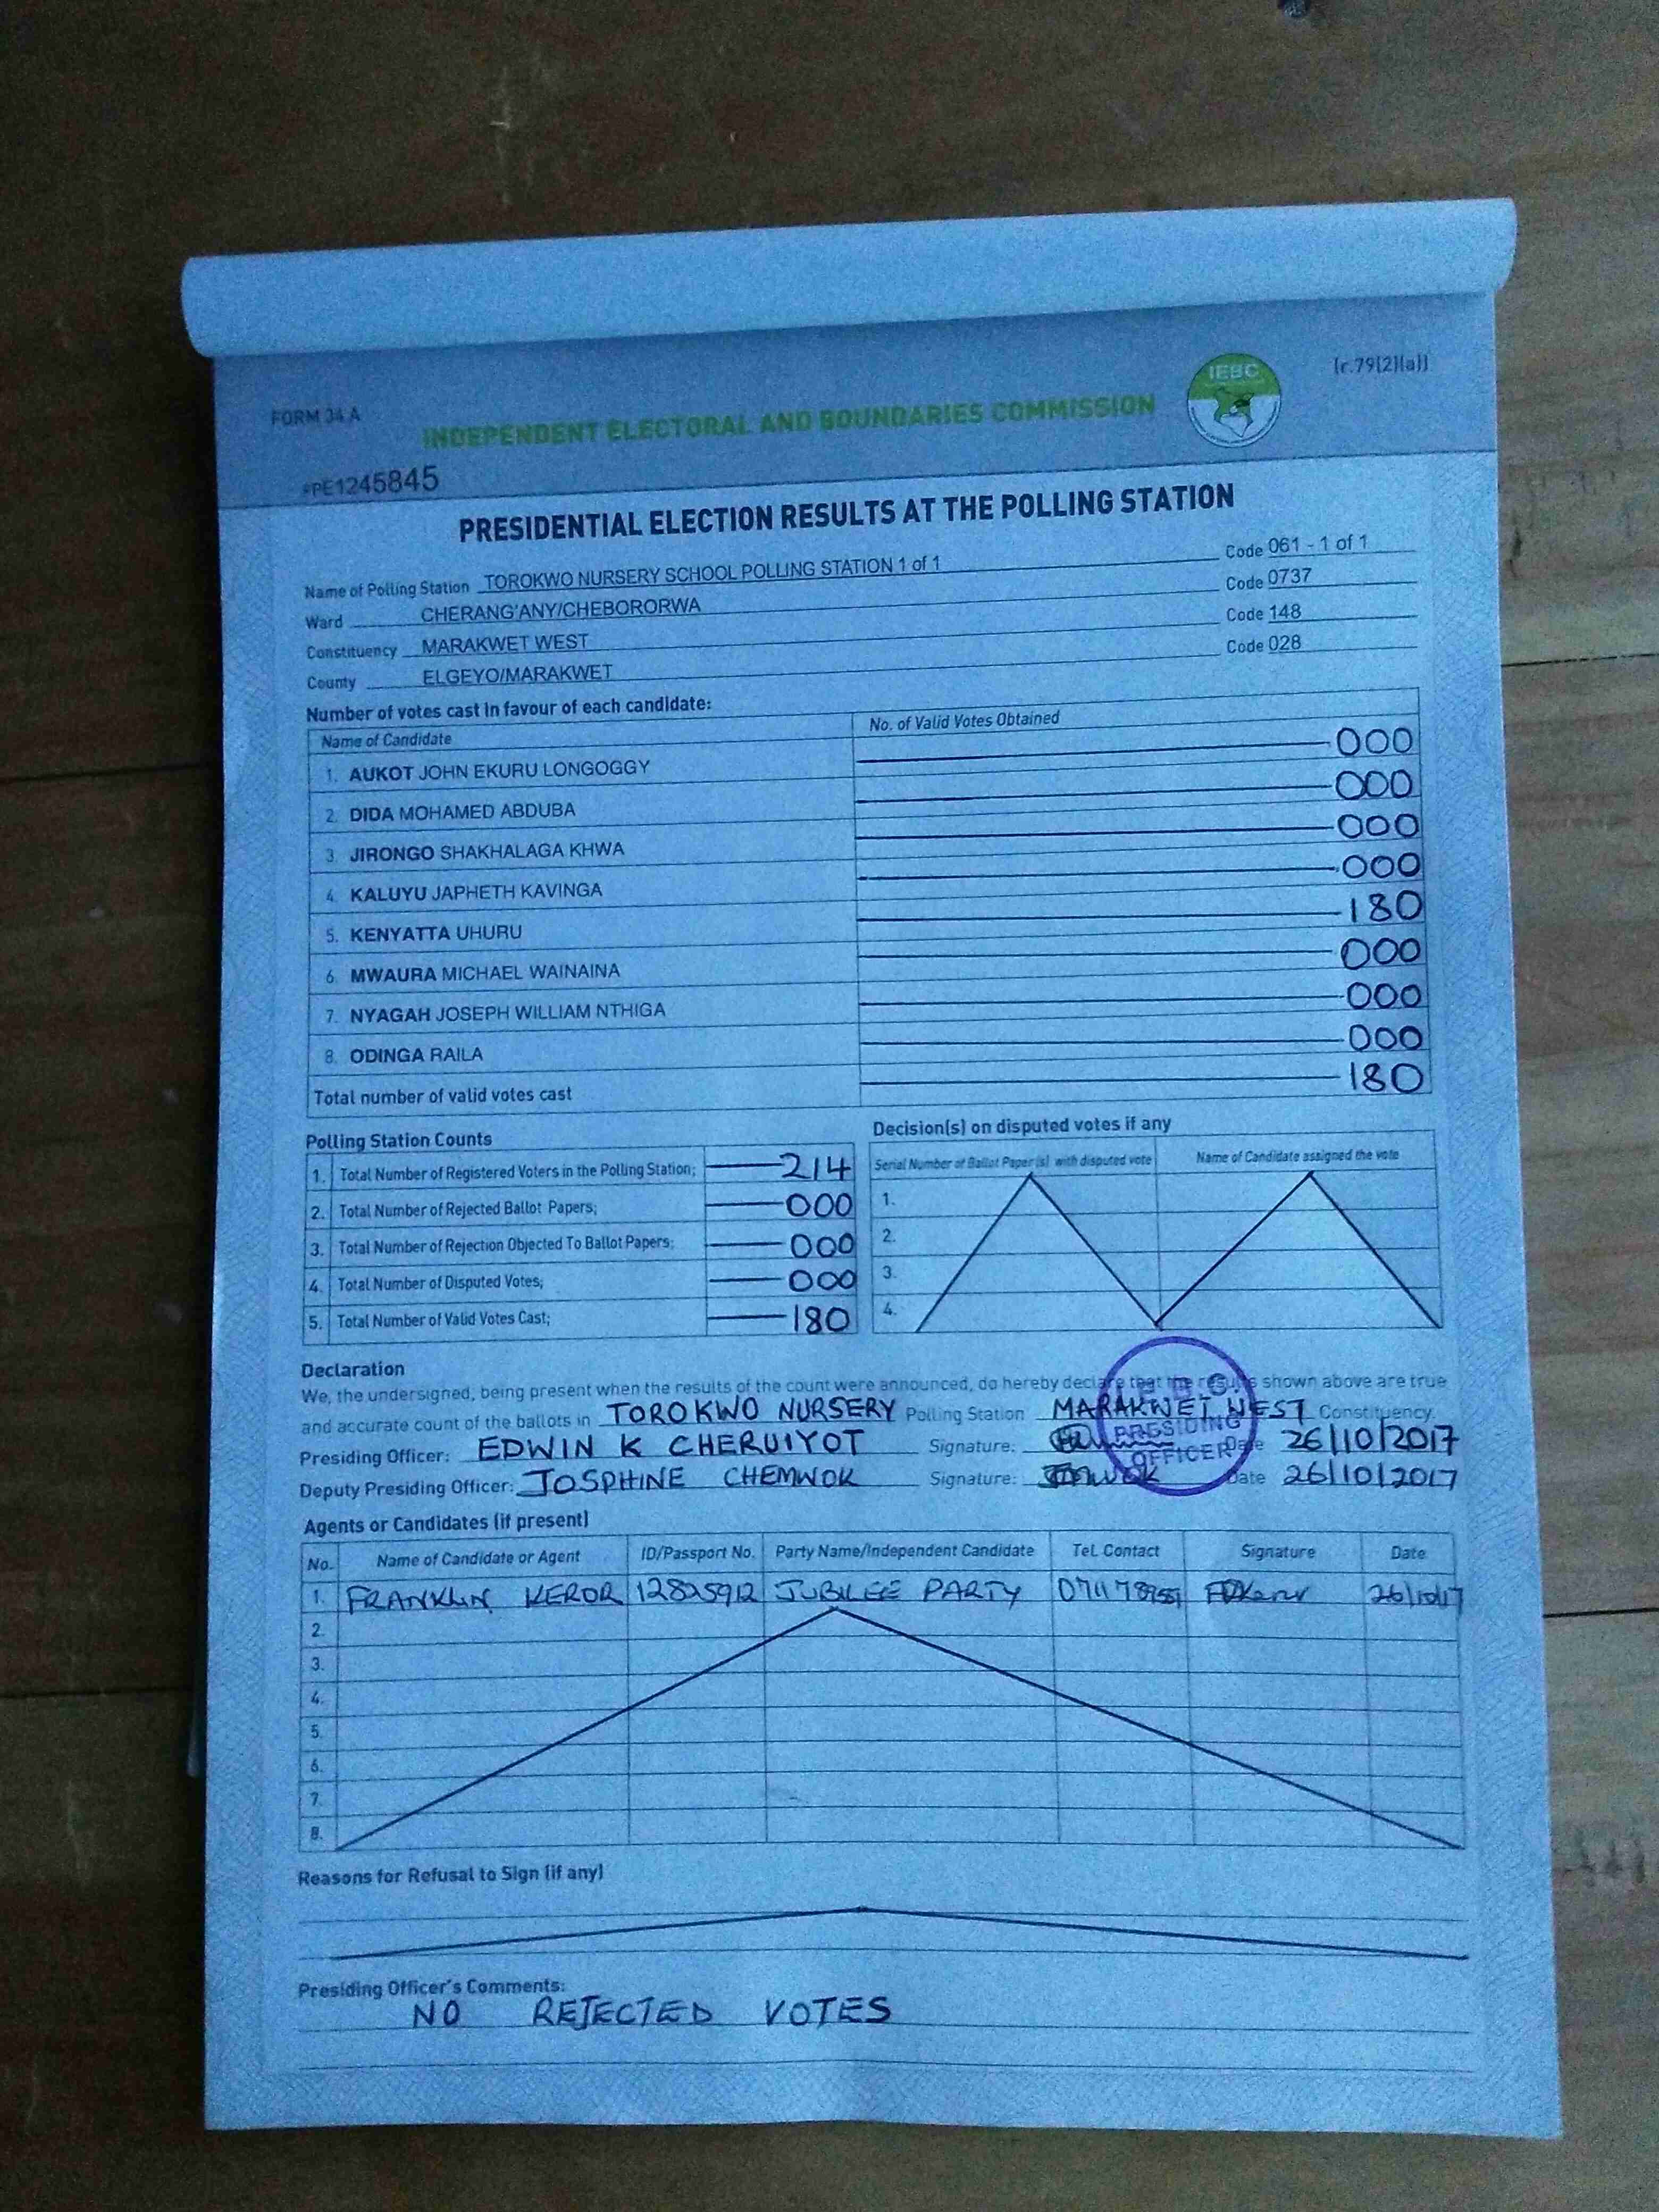 FORM 34 A
INDEPENDENT ELECTORAL AND BOUNDARIES COMMISSION
IEBC
(r.79(2)(a))
PE1245845
PRESIDENTIAL ELECTION RESULTS AT THE POLLING STATION
Name of Polling Station TOROKWO NURSERY SCHOOL POLLING STATION 1 of 1 Code 061 - 1 of 1
Ward CHERANG'ANY/CHEBORORWA Code 0737
Constituency MARAKWET WEST Code 148
County ELGEYO/MARAKWET Code 028
Number of votes cast in favour of each candidate:
Name of Candidate No. of Valid Votes Obtained
1. AUKOT JOHN EKURU LONGOGGY 000
2. DIDA MOHAMED ABDUBA 000
3. JIRONGO SHAKHALAGA KHWA 000
4. KALUYU JAPHETH KAVINGA 000
5. KENYATTA UHURU 180
6. MWAURA MICHAEL WAINAINA 000
7. NYAGAH JOSEPH WILLIAM NTHIGA 000
8. ODINGA RAILA 000
Total number of valid votes cast 180
Polling Station Counts
1. Total Number of Registered Voters in the Polling Station; 214
2. Total Number of Rejected Ballot Papers; 000
3. Total Number of Rejection Objected To Ballot Papers; 000
4. Total Number of Disputed Votes; 000
5. Total Number of Valid Votes Cast; 180
Decision(s) on disputed votes if any
Serial Number of Ballot Paper(s) with disputed vote Name of Candidate assigned the vote
1.
2.
3.
4.
Declaration
We, the undersigned, being present when the results of the count were announced, do hereby declare that the results shown above are true
and accurate count of the ballots in TOROKWO NURSERY Polling Station MARAKWET WEST Constituency.
Presiding Officer: EDWIN K CHERUIYOT Signature: Date 26/10/2017
Deputy Presiding Officer: JOSPHINE CHEMWOK Signature: Date 26/10/2017
PRESIDING
OFFICER
Agents or Candidates (if present)
No. Name of Candidate or Agent ID/Passport No. Party Name/Independent Candidate Tel. Contact Signature Date
1. FRANKLIN KEROR 12825912 JUBILEE PARTY 26/10/17
2.
3.
4.
5.
6.
7.
8.
Reasons for Refusal to Sign (if any)
Presiding Officer's Comments:
NO REJECTED VOTES